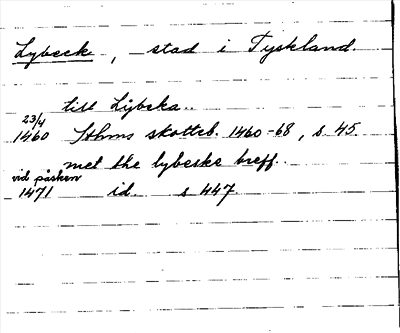 Lybeck, stad i Tyskland.
till Lybeka..
23/4
1460 Sthms skotteb. 1460-68, s 45
met the lybeske breff..
vid påsken
1471 id s 447